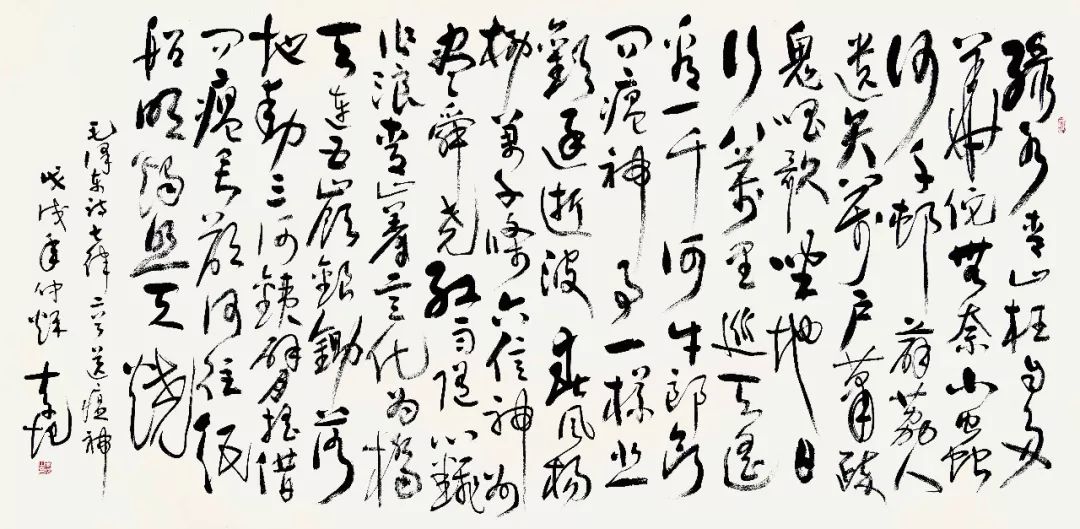 綠水青山枉自多
華佗無奈小蟲
何千邨薜荔人
遺矢萬戶蕭疏
鬼唱歌坐地日
行八萬里巡天遙
看一千河牛郎欲
問瘟神事一樣悲
歡逐逝波春風楊
柳萬千條六億神州
盡舜堯紅雨隨心翻
作浪青山著意化為橋
天連五嶺銀鋤落
地動三河鐵臂搖借
問瘟君欲何往紙
船明燭照天燒
毛澤東詩七律二首送瘟神
戊戌年仲秌